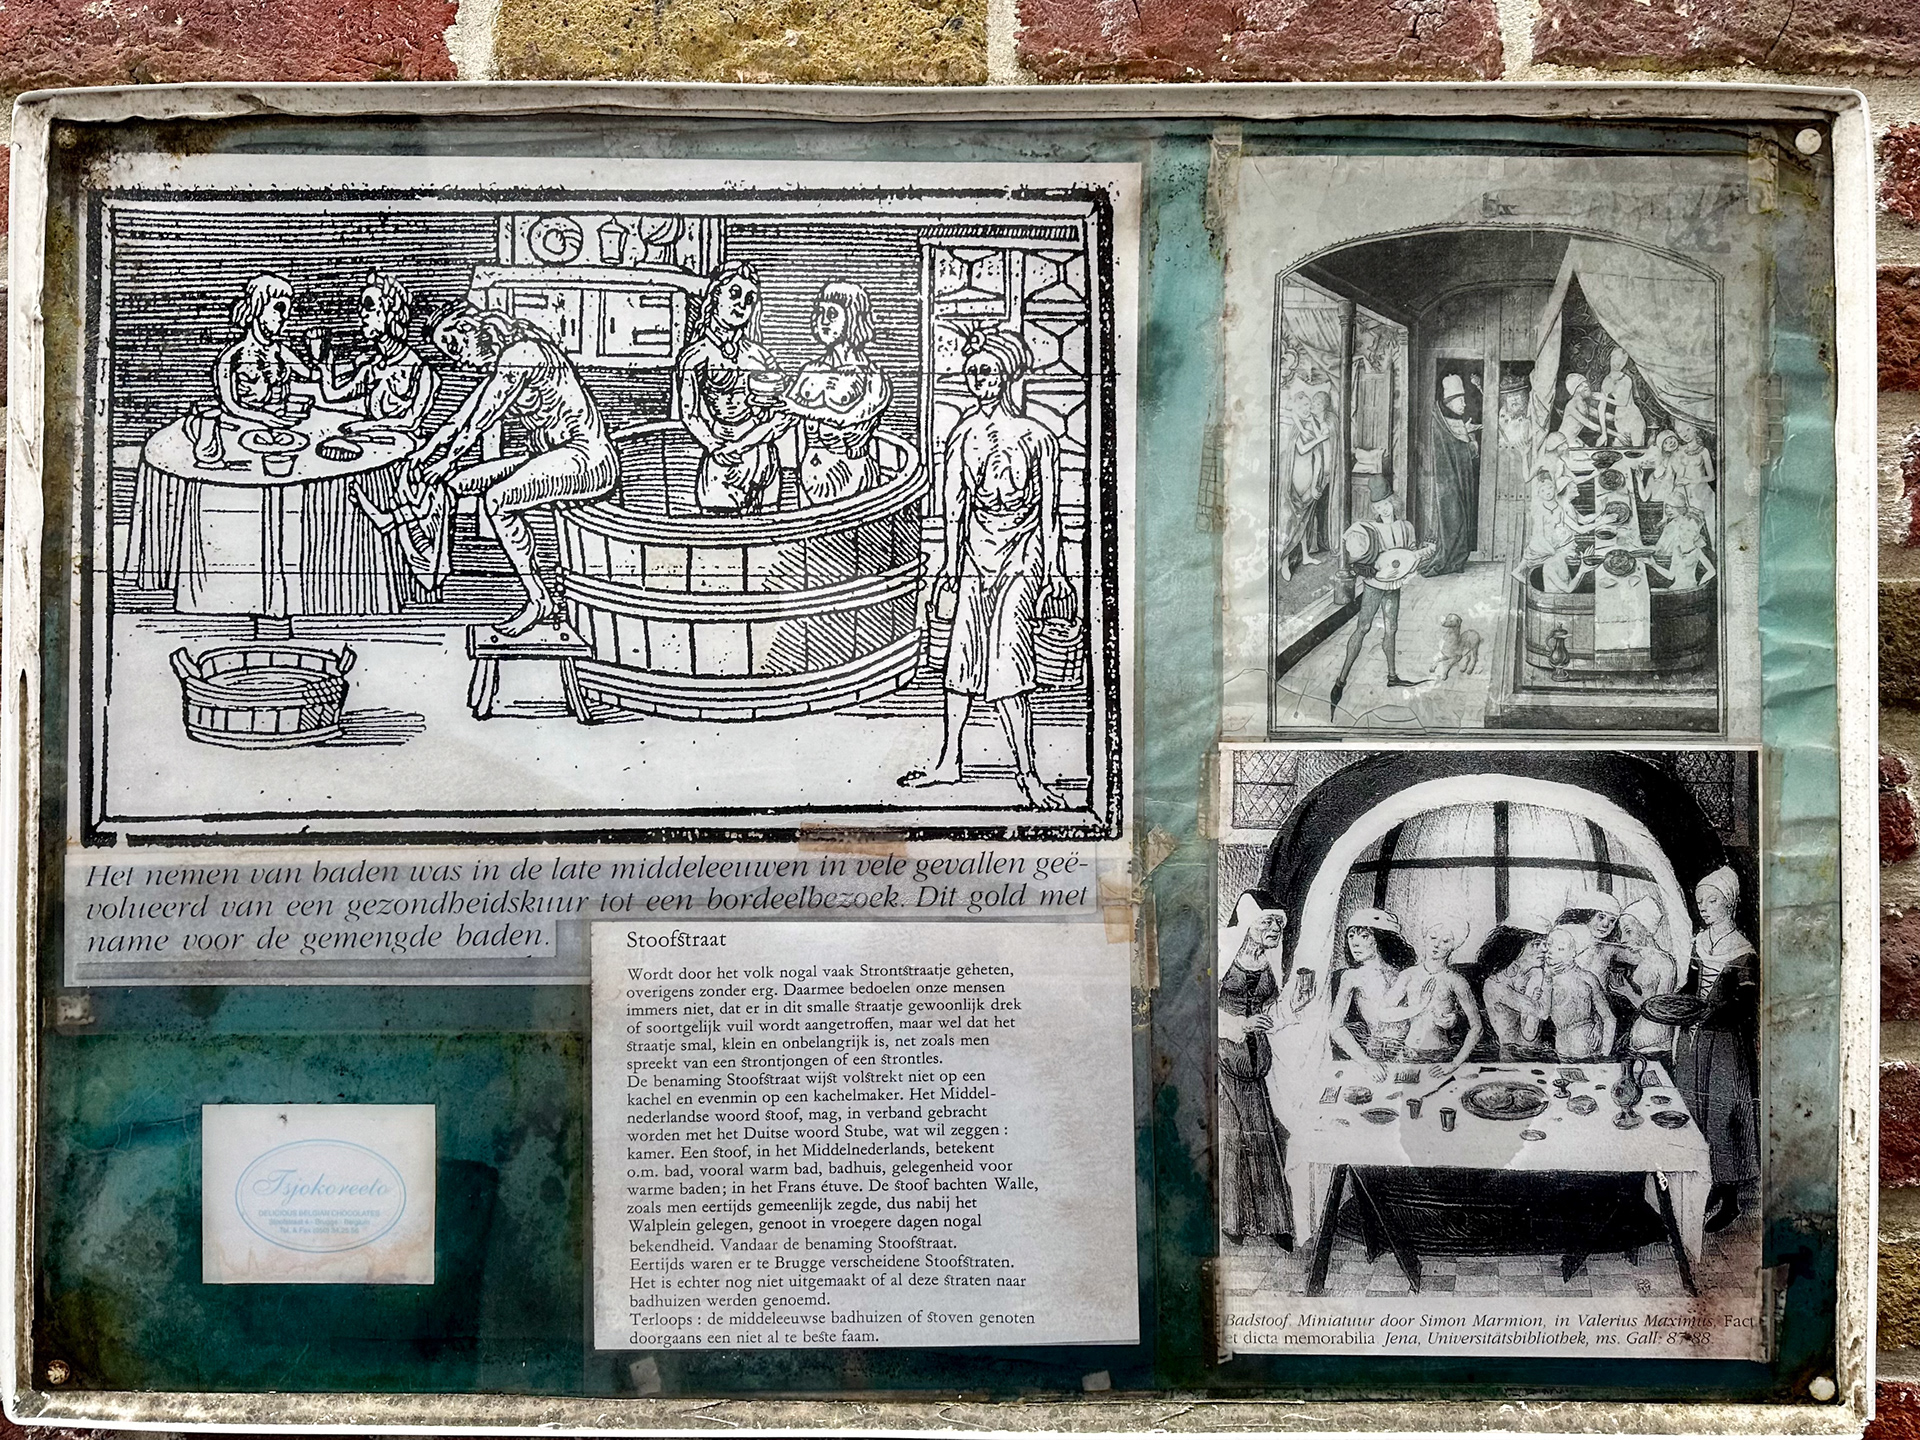 Het nemen van baden was in de late middeleeuwen in vele gevallen geë-
volueerd van een gezondheidskuur tot een bordeelbezoek. Dit gold met
name voor de gemengde baden.
Stoofstraat
Wordt door het volk nogal vaak Strontstraatje geheten,
overigens zonder erg. Daarmee bedoelen onze mensen
immers niet, dat er in dit smalle straatje gewoonlijk drek
of soortgelijk vuil wordt aangetroffen, maar wel dat het
straatje smal, klein en onbelangrijk is, net zoals men
spreekt van een strontjongen of een strontles.
De benaming Stoofstraat wijst volstrekt niet op een
kachel en evenmin op een kachelmaker. Het Middel-
nederlandse woord stoof, mag, in verband gebracht
worden met het Duitse woord Stube, wat wil zeggen :
kamer. Een stoof, in het Middelnederlands, betekent
o.m. bad, vooral warm bad, badhuis, gelegenheid voor
warme baden; in het Frans étuve. De stoof bachten Walle,
zoals men eertijds gemeenlijk zegde, dus nabij het
Walplein gelegen, genoot in vroegere dagen nogal
bekendheid. Vandaar de benaming Stoofstraat.
Eertijds waren er te Brugge verscheidene Stoofstraten.
Het is echter nog niet uitgemaakt of al deze straten naar
badhuizen werden genoemd.
Terloops : de middeleeuwse badhuizen of stoven genoten
doorgaans een niet al te beste faam.
Tsjokoreeto
DELICIOUS BELGIAN CHOCOLATES
Stoofstraat 4 - Brugge - Belgium
Tel. & Fax
Badstoof. Miniatuur door Simon Marmion, in Valerius Maximus, Fact
et dicta memorabilia Jena, Universitätsbibliothek, ms. Gall. 87-88.